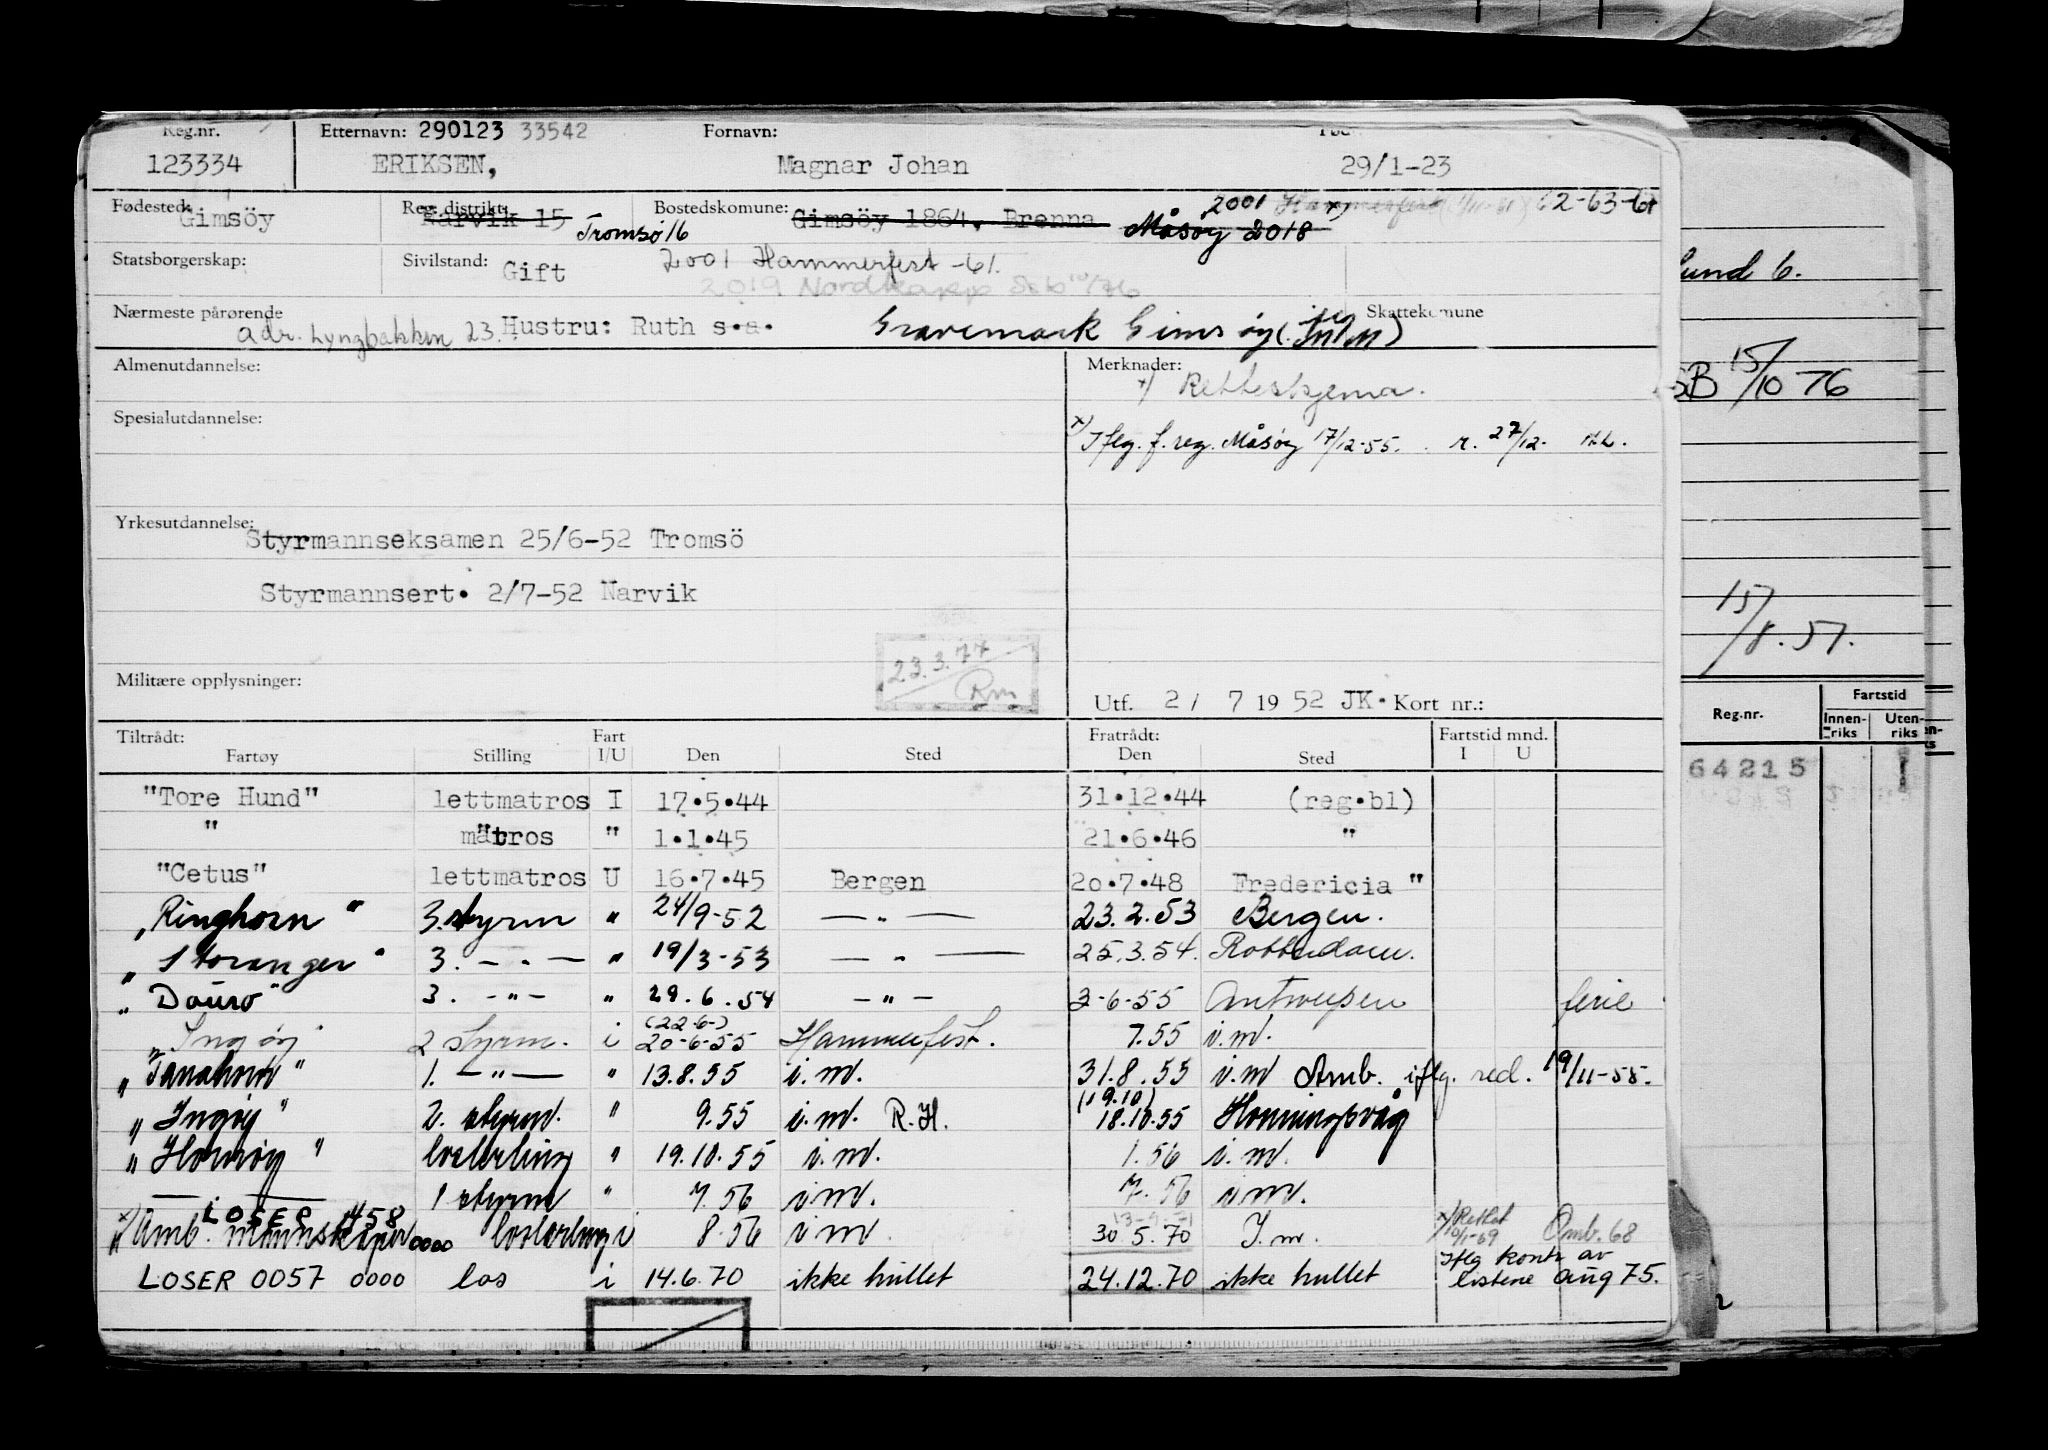 Reg.nr. Etternavn: 290123 33542 Fornavn:
123334 ERIKSEN, Magnar Johan 29/1-23
Fødested: Gimsöy Reg. distrikt: Narvik 15 Tromsø 16 Bostedskomune: Gimsöy 1864. Brenna Måsøy 2018 2001 Hammerfest 62-63-64
Statsborgerskap: Sivilstand: Gift 2001 Hammerfest -61.
2019 Nordkapp
Nærmeste pårørende adr. Lyngbakken 23. Hustru: Ruth s.a. Skattekomune
Almenutdannelse: Merknader:
x) Retteskjema.
Spesialutdannelse: x) Iflg. f. reg. Måsøy 17/12-55. r. 27/12-
Yrkesutdannelse: Styrmannseksamen 25/6-52 Tromsö
Styrmannsert. 2/7-52 Narvik
23.3.77
Rm
Militære opplysninger: Utf. 2/ 7 19 52 JK. Kort nr.:
Tiltrådt: Fart Fratrådt: Fartstid mnd.
Fartøy Stilling I/U Den Sted Den Sted I U
"Tore Hund" lettmatros I 17.5.44 31.12.44 (reg.bl)
" matros " 1.1.45 21.6.46 "
"Cetus" lettmatros U 16.7.45 Bergen 20.7.48 Fredericia "
"Ringhorn" 3. styrm " 24/9-52 — " — 23.2.53 Bergen.
"Storanger" 3. — " — " 19/3-53 — " — 25.3.54. Rotterdam.
"Douro" 3. — " — " 29.6.54 — " — 2-6-55 Antwerpen ferie
"Ingøy" 2 styrm. i (22-6-) 20-6-55 Hammerfest. 7.55 i.m.
"Tanahorn" 1. — " — " 13.8.55 i.m. 31.8.55 i.m Amb. iflg. red. 19/11-55.
"Ingøy" 2. styrm. " 9.55 i.m. R.H. (19.10) 18.10.55 Honningsvåg
"Hornøy" losterling " 19.10.55 i.m. 1.56 i.m.
— — 1 styrm " 7.56 i.m. 7.56 i.m.
LOSER 1458
x) Amb. mannskaper 0000 i 8.56 i m 30.5.70 I.m. x) Rettet 10/1-69 Omb. 68
LOSER 0057 0000 los i 14.6.70 ikke hullet 24.12.70 ikke hullet Iflg kontr av listene aug 75.
Lund 6.
SB 15/10 76
15/8.57.
Reg.nr. Fartstid
Innen-riks Uten-riks
64215